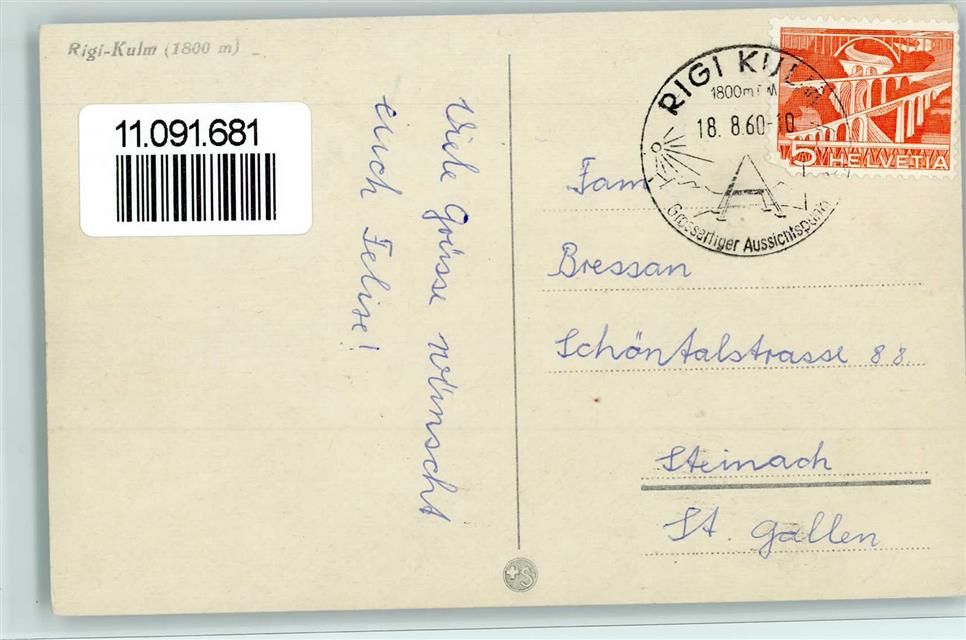 Rigi-Kulm (1800 m)
11.091.681
Viele Grüsse wünscht
Euch Felise!
RIGI KULM
1800m ü M
18. 8.60-10
Grossartiger Aussichtspunkt
5 HELVETIA
Fam
Bressan
Schöntalstrasse 88.
Steinach
St. Gallen
+S